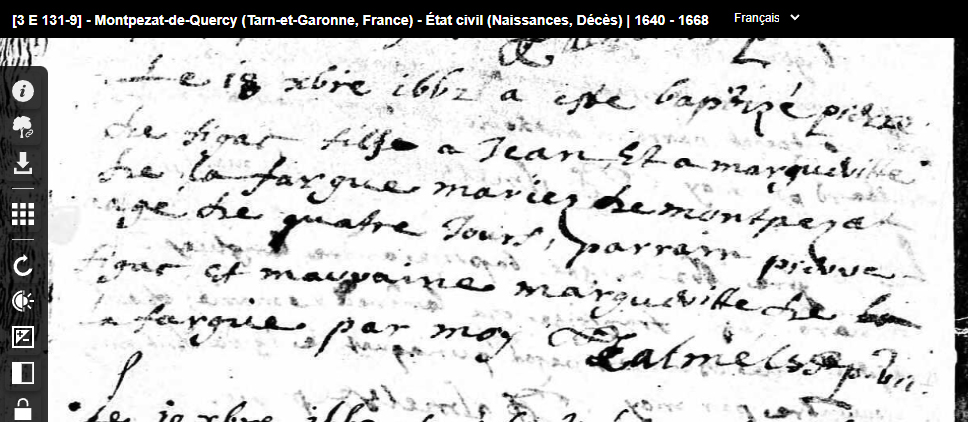 [3 E 131-9] - Montpezat-de-Quercy (Tarn-et-Garonne, France) - État civil (Naissances, Décès) | 1640 - 1668
Français
Le 18 xbre 1662 a este baptizé pierre
de figac fills a Jean Et a margueritte
de la fargue maries de montpezat
age de quatre Jours, parrain pierre
figac et marraine margueritte de
la fargue par moy
Le 19 xbre